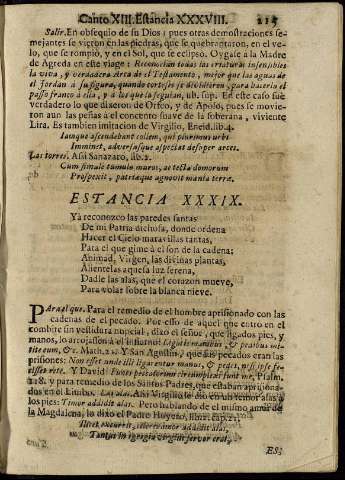 Canto XIII. Estancia XXXVIII. 215
Salir. En obsequio de su Dios; pues otras demostraciones se-
mejantes se vieron en las piedras, que se quebrantaron, en el ve-
lo, que se rompiò, y en el Sol, que se eclipsò. Oygase à la Madre
de Agreda en este viage: Reconocian todas las criaturas insensibles
la viva, y verdadera Arca de el Testamento, mejor que las aguas de
el Jordan a su figura, quando corteses se dividieron, para hacerla el
passo franco à ella, y à los que la seguian, ub. sup. En este caso fuè
verdadero lo que dixeron de Orfeo, y de Apolo, pues se movie-
ron aun las peñas à el concento suave de la soberana, viviente
Lira. Es tambien imitacion de Virgilio, Eneid. lib. 4.
Iamque ascendebant collem, qui plurimus urbi
Imminet, adversasque aspectat desuper arces.
Las torres. Assi Sanazaro, lib. 2.
Cum simule tumulo muros, ac tecta domorum
Prospexit, patriæque agnovit mænia terræ.
ESTANCIA XXXIX.
YA reconozco las paredes santas
De mi Patria dichosa, donde ordena
Hacer el Cielo maravillas tantas,
Para el que gime à el son de la cadena;
Animad, Virgen, las divinas plantas,
Alientelas aquesa luz serena,
Dadle las alas, que el corazon mueve,
Para volar sobre la blanca nieve.
PAra el que. Para el remedio de el hombre aprisionado con las
cadenas de el pecado. Por esso de aquel que entro en el
combite sin vestidura nupcial, dixo el señor, que ligados pies, y
manos, lo arrojassen à el infierno: Ligatis manibus, & pedibus mi-
tite eum, &c. Math. 22. Y San Agustin, que los pecados eran las
prisiones: Non esset unde illi ligarentur manus, & pedes, nisi ipse fe-
cisset
Y David: Funes peccatorum circumplexi sunt me, Psalm.
118. y para remedio de los Santos Padres, que estaban aprisiona-
dos en el Limbo. Las alas. Assi Virgilio le dio
à
los pies: Timor addidit alas. Pero hablando de el mismo amor de
la Magdalena, lo dixo el Padre
lib.
cap. 21.
Illicet excurrit, celeres amor addidit alas,
Tantus in egregia virgine fervor erat.
ES-